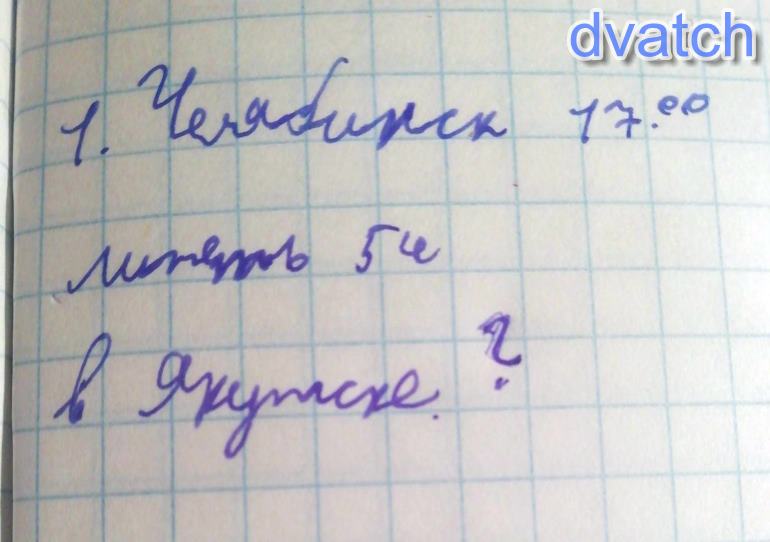 dvatch
1. Челябинск 17.00
лететь 5ч
в Якутске.?